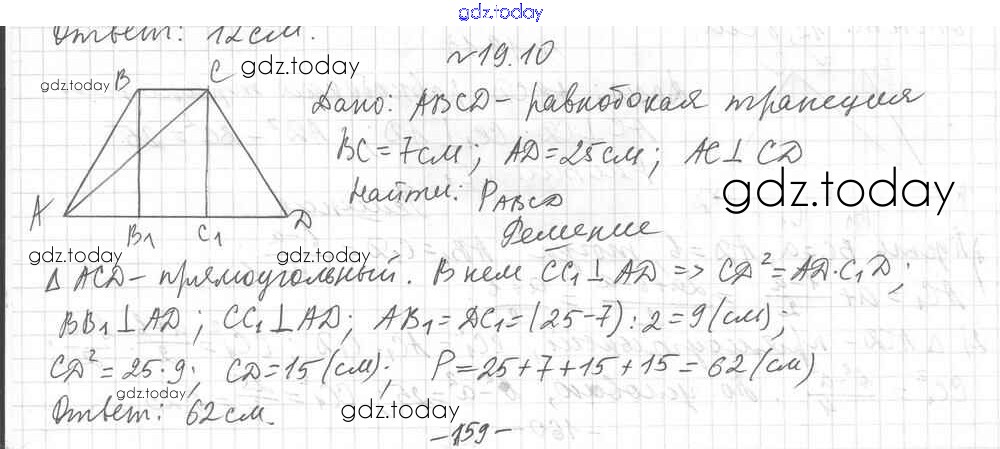 gdz.today
Ответ: 12 см.
№ 19.10
gdz.today
B C gdz.today
Дано: ABCD - равнобокая трапеция
BC = 7 см; AD = 25 см; AC ⊥ CD
Найти: P ABCD
gdz.today
A B₁ C₁ D
Решение
gdz.today gdz.today
Δ ACD - прямоугольный. В нем CC₁ ⊥ AD => CD² = AD·C₁D;
BB₁ ⊥ AD; CC₁ ⊥ AD; AB₁ = DC₁ = (25-7):2 = 9 (см);
CD² = 25·9; CD = 15 (см); P = 25+7+15+15 = 62 (см)
gdz.today
Ответ: 62 см. gdz.today
-159-